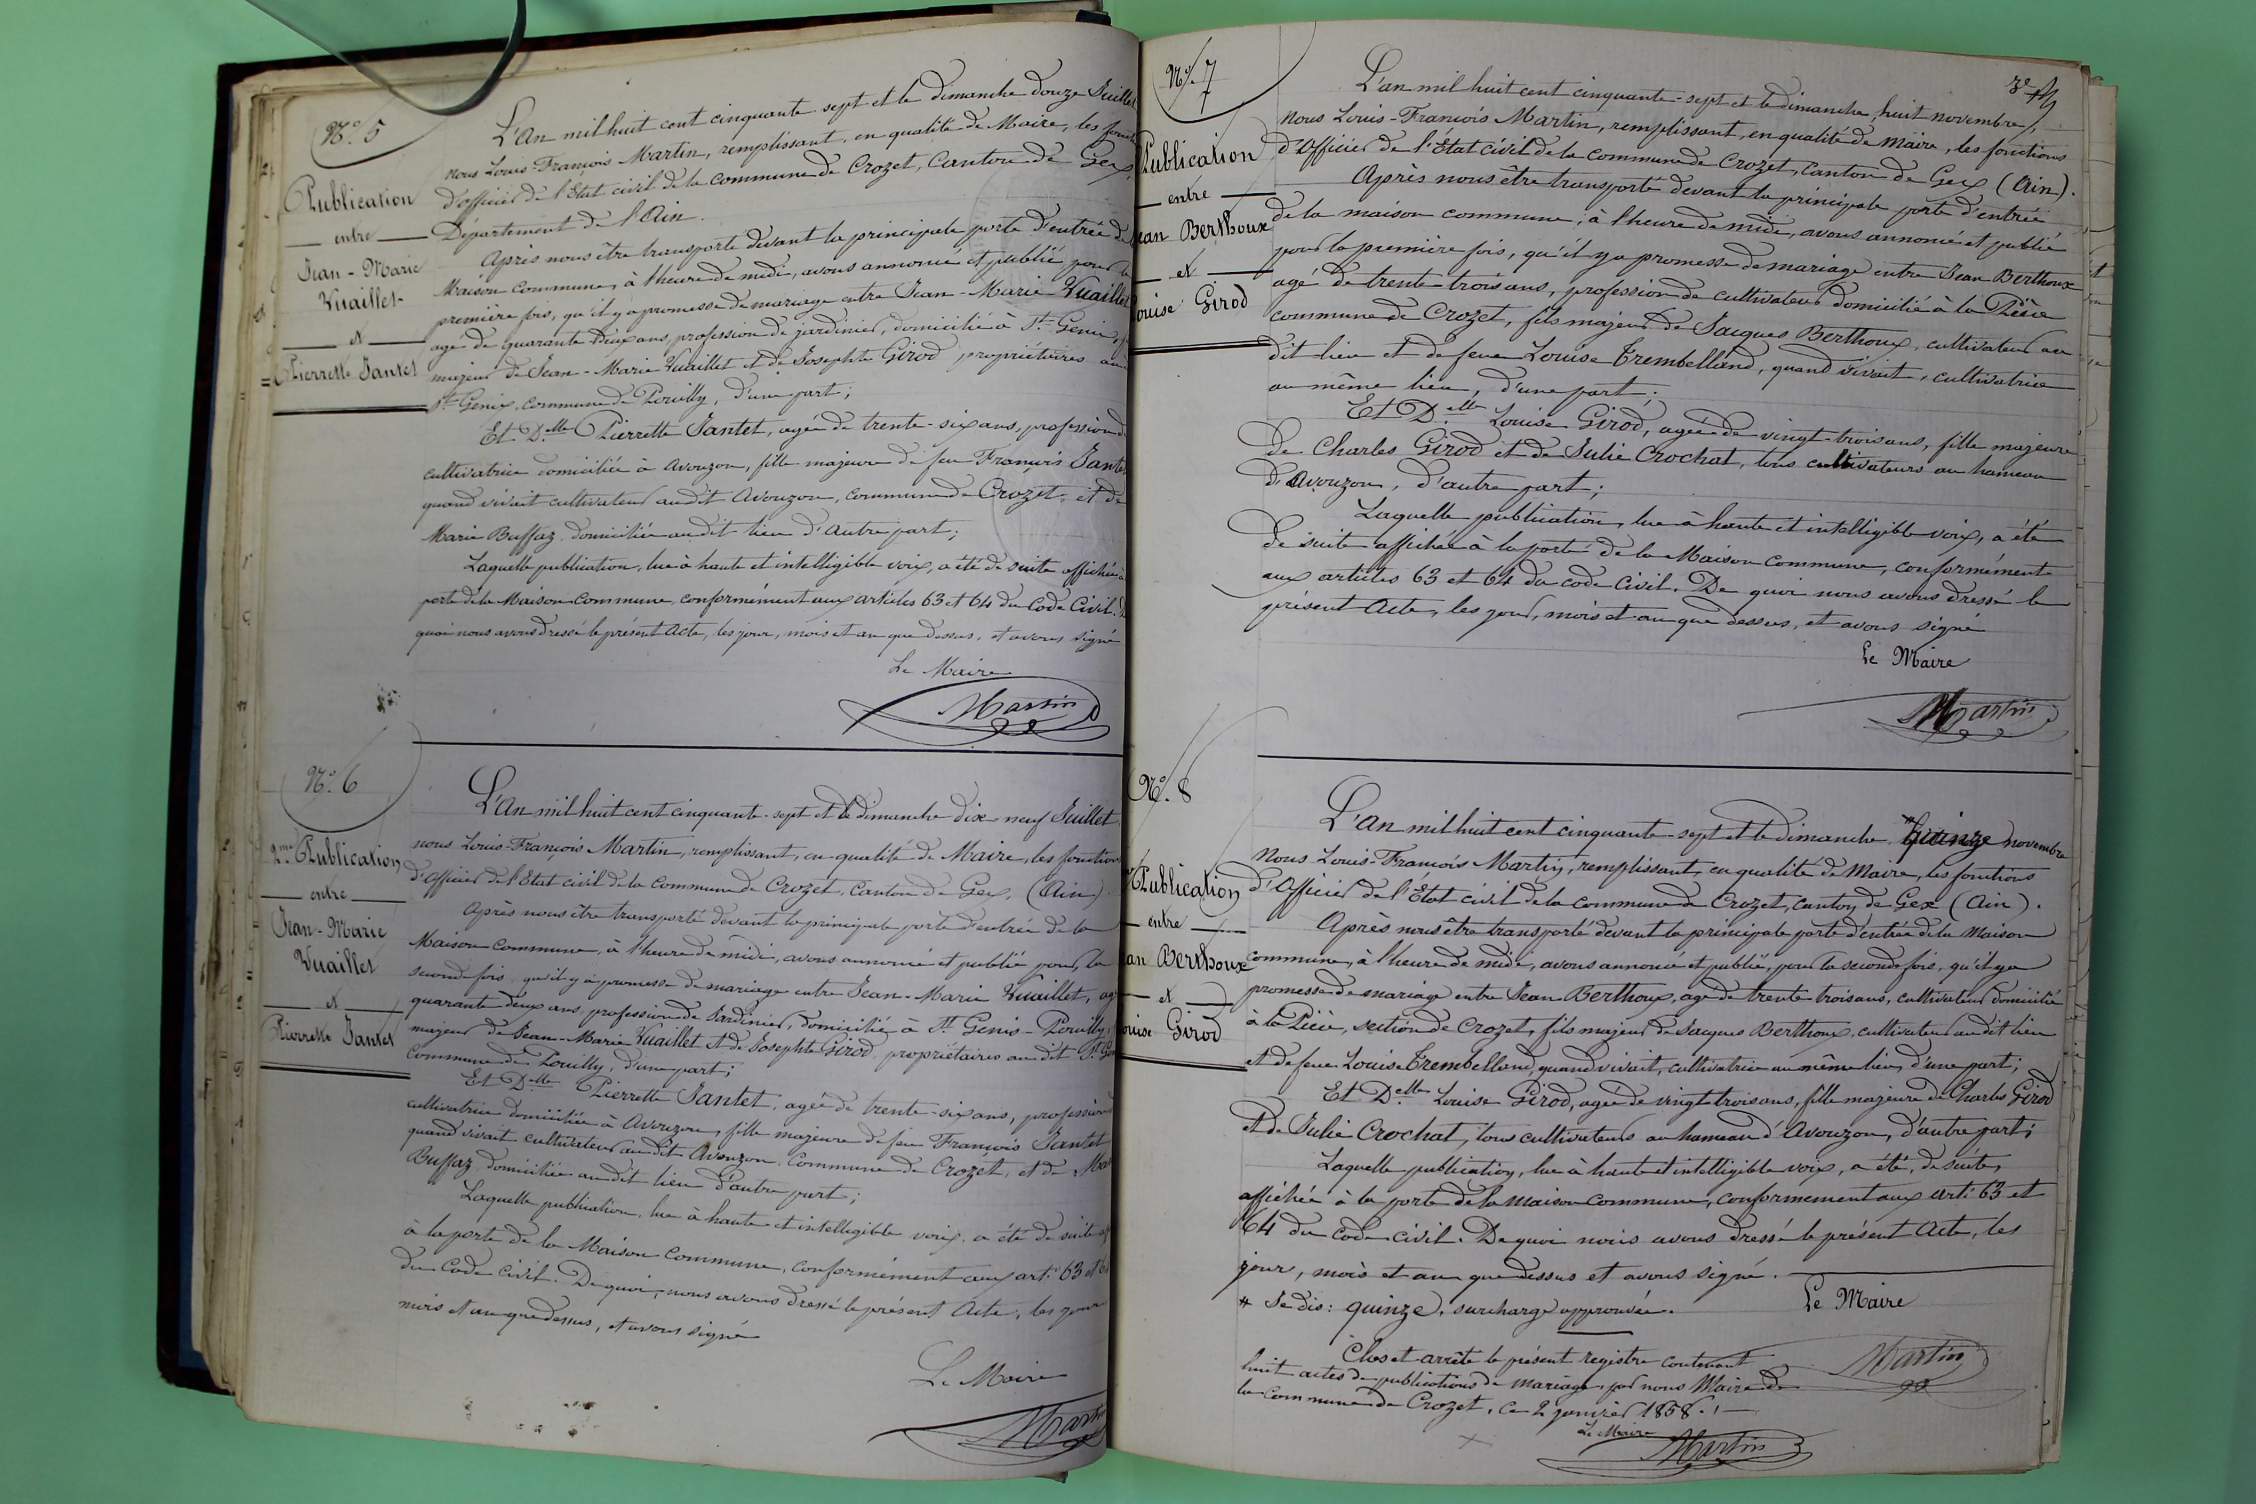 N.° 5
Publication
entre
Jean-Marie
Vuaillet
et
Pierrette Jantet
L'An mil huit cent cinquante sept et le dimanche douze Juillet
nous Louis-François Martin, remplissant, en qualité de Maire, les
d'officier de l'Etat civil de la commune de Crozet, Canton de Gex,
Département de l'Ain.
Après nous être transporté devant la principale porte d'entrée de
Maison commune, à l'heure de midi, avons annoncé et publié pour la
première fois, qu'il y a promesse de mariage entre Jean-Marie Vuaillet
agé de quarante deux ans, profession de jardinier, domicilié à St Genix,
majeur de Jean-Marie Vuaillet et de Josephte Girod propriétaires au
St Genix, commune de Pouilly, d'une part;
Et D.elle Pierrette Jantet, agée de trente-six ans, profession d
cultivatrice domiciliée à Avouzon, fille majeure de feu François Jantet
quand vivait cultivateur audit Avouzon, commune de Crozet, et de
Marie Buffaz domiciliée audit lieu d'autre part;
Laquelle publication, lue à haute et intelligible voix, a été de suite affichée à
porte de la Maison commune, conformément aux articles 63 et 64 du Code Civil. D
quoi nous avons dressé le présent Acte, les jour, mois et an que dessus, et avons signé
Le Maire
Martin
N.° 6
2.me Publication
entre
Jean-Marie
Vuaillet
et
Pierrette Jantet
L'An mil huit cent cinquante-sept et le dimanche dix-neuf Juillet
nous Louis-François Martin, remplissant, en qualité de Maire, les fonctions
d'officier de l'Etat civil de la commune de Crozet, Canton de Gex, (Ain).
Après nous être transporté devant la principale porte d'entrée de la
Maison commune, à l'heure de midi, avons annoncé et publié pour la
seconde fois, qu'il y a promesse de mariage entre Jean-Marie Vuaillet, ag
quarante deux ans, profession de Jardinier, domicilié à St Genis-Pouilly,
majeur de Jean-Marie Vuaillet et de Josephte Girod propriétaires audit St Gen
commune de Pouilly, d'une part;
Et D.elle Pierrette Jantet, agée de trente-six ans, profession d
cultivatrice domiciliée à Avouzon, fille majeure de feu François Jantet
quand vivait cultivateur audit Avouzon, Commune de Crozet, et de Mar
Buffaz domiciliée audit lieu d'autre part;
Laquelle publication, lue à haute et intelligible voix, a été de suite aff
à la porte de la Maison commune, conformément aux art. 63 et 64
du Code civil. De quoi, nous avons dressé le présent Acte, les jour
mois et an que dessus, et avons signé
Le Maire
Martin
N.° 7
Publication
entre
Jean Berthoux
et
Louise Girod
L'an mil huit cent cinquante-sept et le dimanche, huit novembre,
nous Louis-François Martin, remplissant, en qualité de Maire, les fonctions
d'Officier de l'État civil de la commune de Crozet, Canton de Gex (Ain).
Après nous être transporté devant la principale porte d'entrée
de la maison commune, à l'heure de midi, avons annoncé et publié
pour la première fois, qu'il y a promesse de mariage entre Jean Berthoux
agé de trente-trois ans, profession de cultivateur domicilié à la
commune de Crozet, fils majeur de Jacques Berthoux, cultivateur au
dit lieu et de feue Louise Trembelland, quand vivait, cultivatrice
au même lieu, d'une part;
Et D.elle Louise Girod, agée de vingt-trois ans, fille majeure
de Charles Girod et de Julie Crochat, tous cultivateurs au hameau
d'Avouzon, d'autre part;
Laquelle publication, lue à haute et intelligible voix, a été
de suite affichée à la porte de la Maison commune, conformément
aux articles 63 et 64 du code civil. De quoi nous avons dressé le
présent Acte, les jour, mois et an que dessus, et avons signé
Le Maire
Martin
N.° 8
Publication
entre
ean Berthoux
et
ouise Girod
L'an mil huit cent cinquante-sept et le dimanche * quinze novembre
Nous Louis-François Martin, remplissant, en qualité de Maire, les fonctions
d'Officier de l'État civil de la commune de Crozet, canton de Gex (Ain).
Après nous être transporté devant la principale porte d'entrée de la Maison
commune, à l'heure de midi, avons annoncé et publié, pour la seconde fois, qu'il y a
promesse de mariage entre Jean Berthoux, agé de trente trois ans, cultivateur domicilié
à la section de Crozet, fils majeur de Jacques Berthoux, cultivateur audit lieu
et de feue Louise Trembelland, quand vivait, cultivatrice au même lieu, d'une part;
Et D.elle Louise Girod, agée de vingt trois ans, fille majeure de Charles Girod
et de Julie Crochat, tous cultivateurs au hameau d'Avouzon, d'autre part;
Laquelle publication, lue à haute et intelligible voix, a été, de suite,
affichée à la porte de la maison commune, conformément aux arti. 63 et
64 du code civil. De quoi nous avons dressé le présent Acte, les
jour, mois et an que dessus et avons signé.
* Je dis: quinze, surcharge approuvée.
Le Maire
Martin
Clos et arrêté le présent registre contenant
huit actes de publications de mariage, par nous Maire de
la commune de Crozet, ce 2 janvier 1858.
Le Maire
Martin